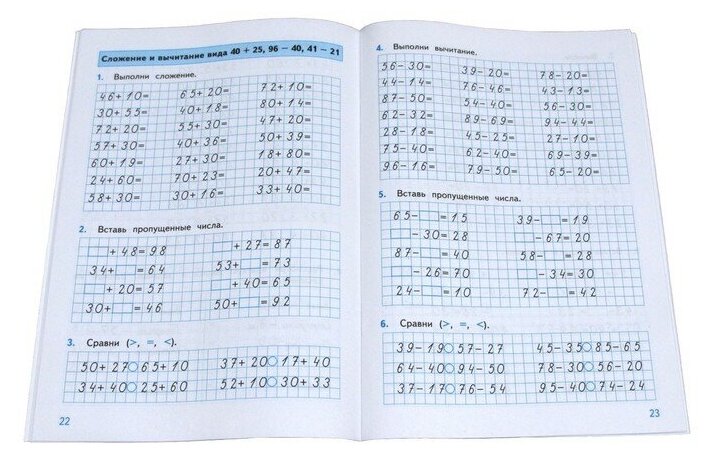 Сложение и вычитание вида 40 + 25, 96 − 40, 41 − 21
1. Выполни сложение.
46+10= 65+20= 72+10=
30+55= 40+18= 80+14=
72+20= 55+30= 47+20=
57+30= 40+36= 50+39=
60+19= 27+30= 18+80=
24+60= 70+23= 20+47=
58+30= 30+16= 33+40=
2. Вставь пропущенные числа.
□+48=98 □+27=87
34+□=64 53+□=73
□+20=57 □+40=65
30+□=46 50+□=92
3. Сравни (>, =, <).
50+27○65+10 37+20○17+40
34+40○25+60 52+10○30+33
22
4. Выполни вычитание.
56−30= 39−20= 78−20=
44−14= 76−46= 43−13=
87−50= 54−40= 56−30=
62−32= 89−69= 94−44=
28−18= 45−25= 27−10=
75−40= 62−40= 69−39=
96−16= 79−50= 65−20=
5. Вставь пропущенные числа.
65−□=15 39−□=19
□−30=28 □−67=20
87−□=40 58−□=28
□−26=70 □−34=30
24−□=10 72−□=42
6. Сравни (>, =, <).
39−19○57−27 45−35○85−65
64−40○94−50 78−30○56−20
37−17○76−54 95−40○74−24
23